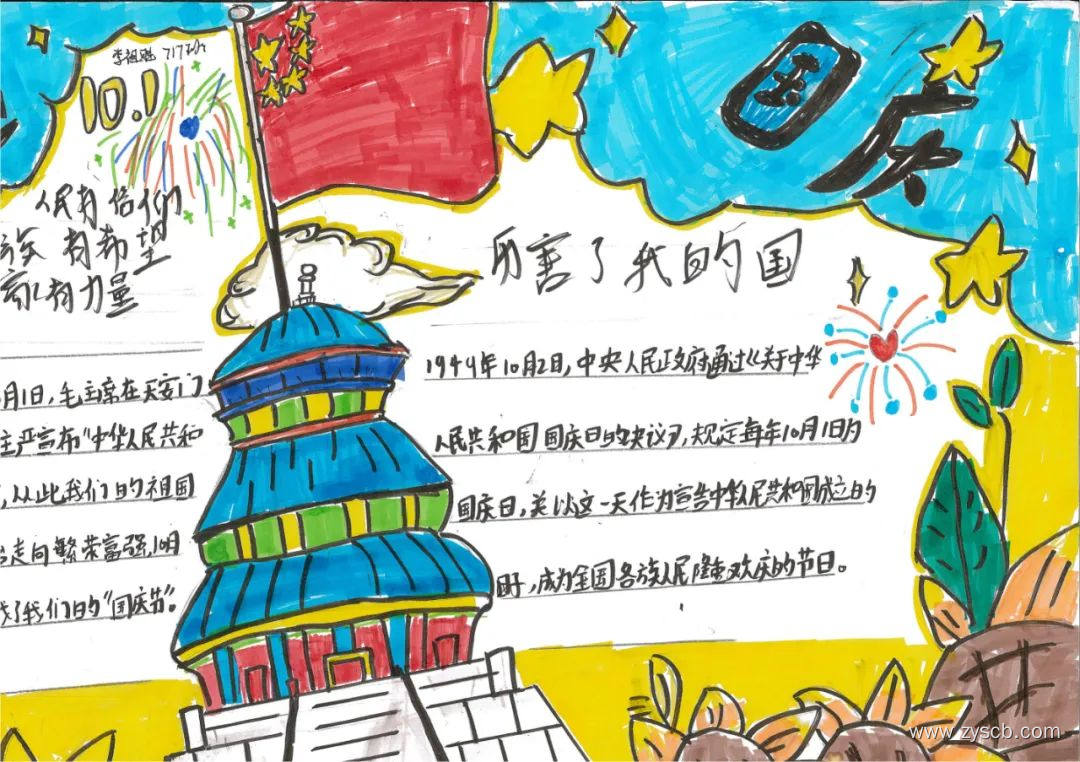 国庆
10.1
人民有信仰
族有希望
家有力量
厉害了我的国
月1日,毛主席在天安门
严宣布“中华人民共和
,从此我们的祖国
走向繁荣富强,10月
了我们的“国庆节”。
1949年10月2日,中央人民政府通过《关于中华
人民共和国国庆日的决议》,规定每年10月1日为
国庆日,并以这一天作为宣告中华人民共和国成立的
,成为全国各族人民隆重欢庆的节日。
www.zyscb.com